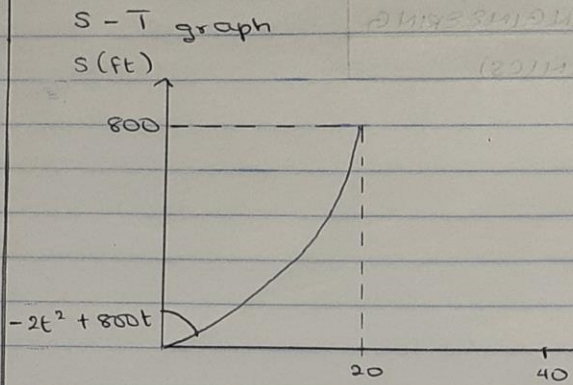 S - T graph
S (ft)
800
-2t² + 800t
20
40